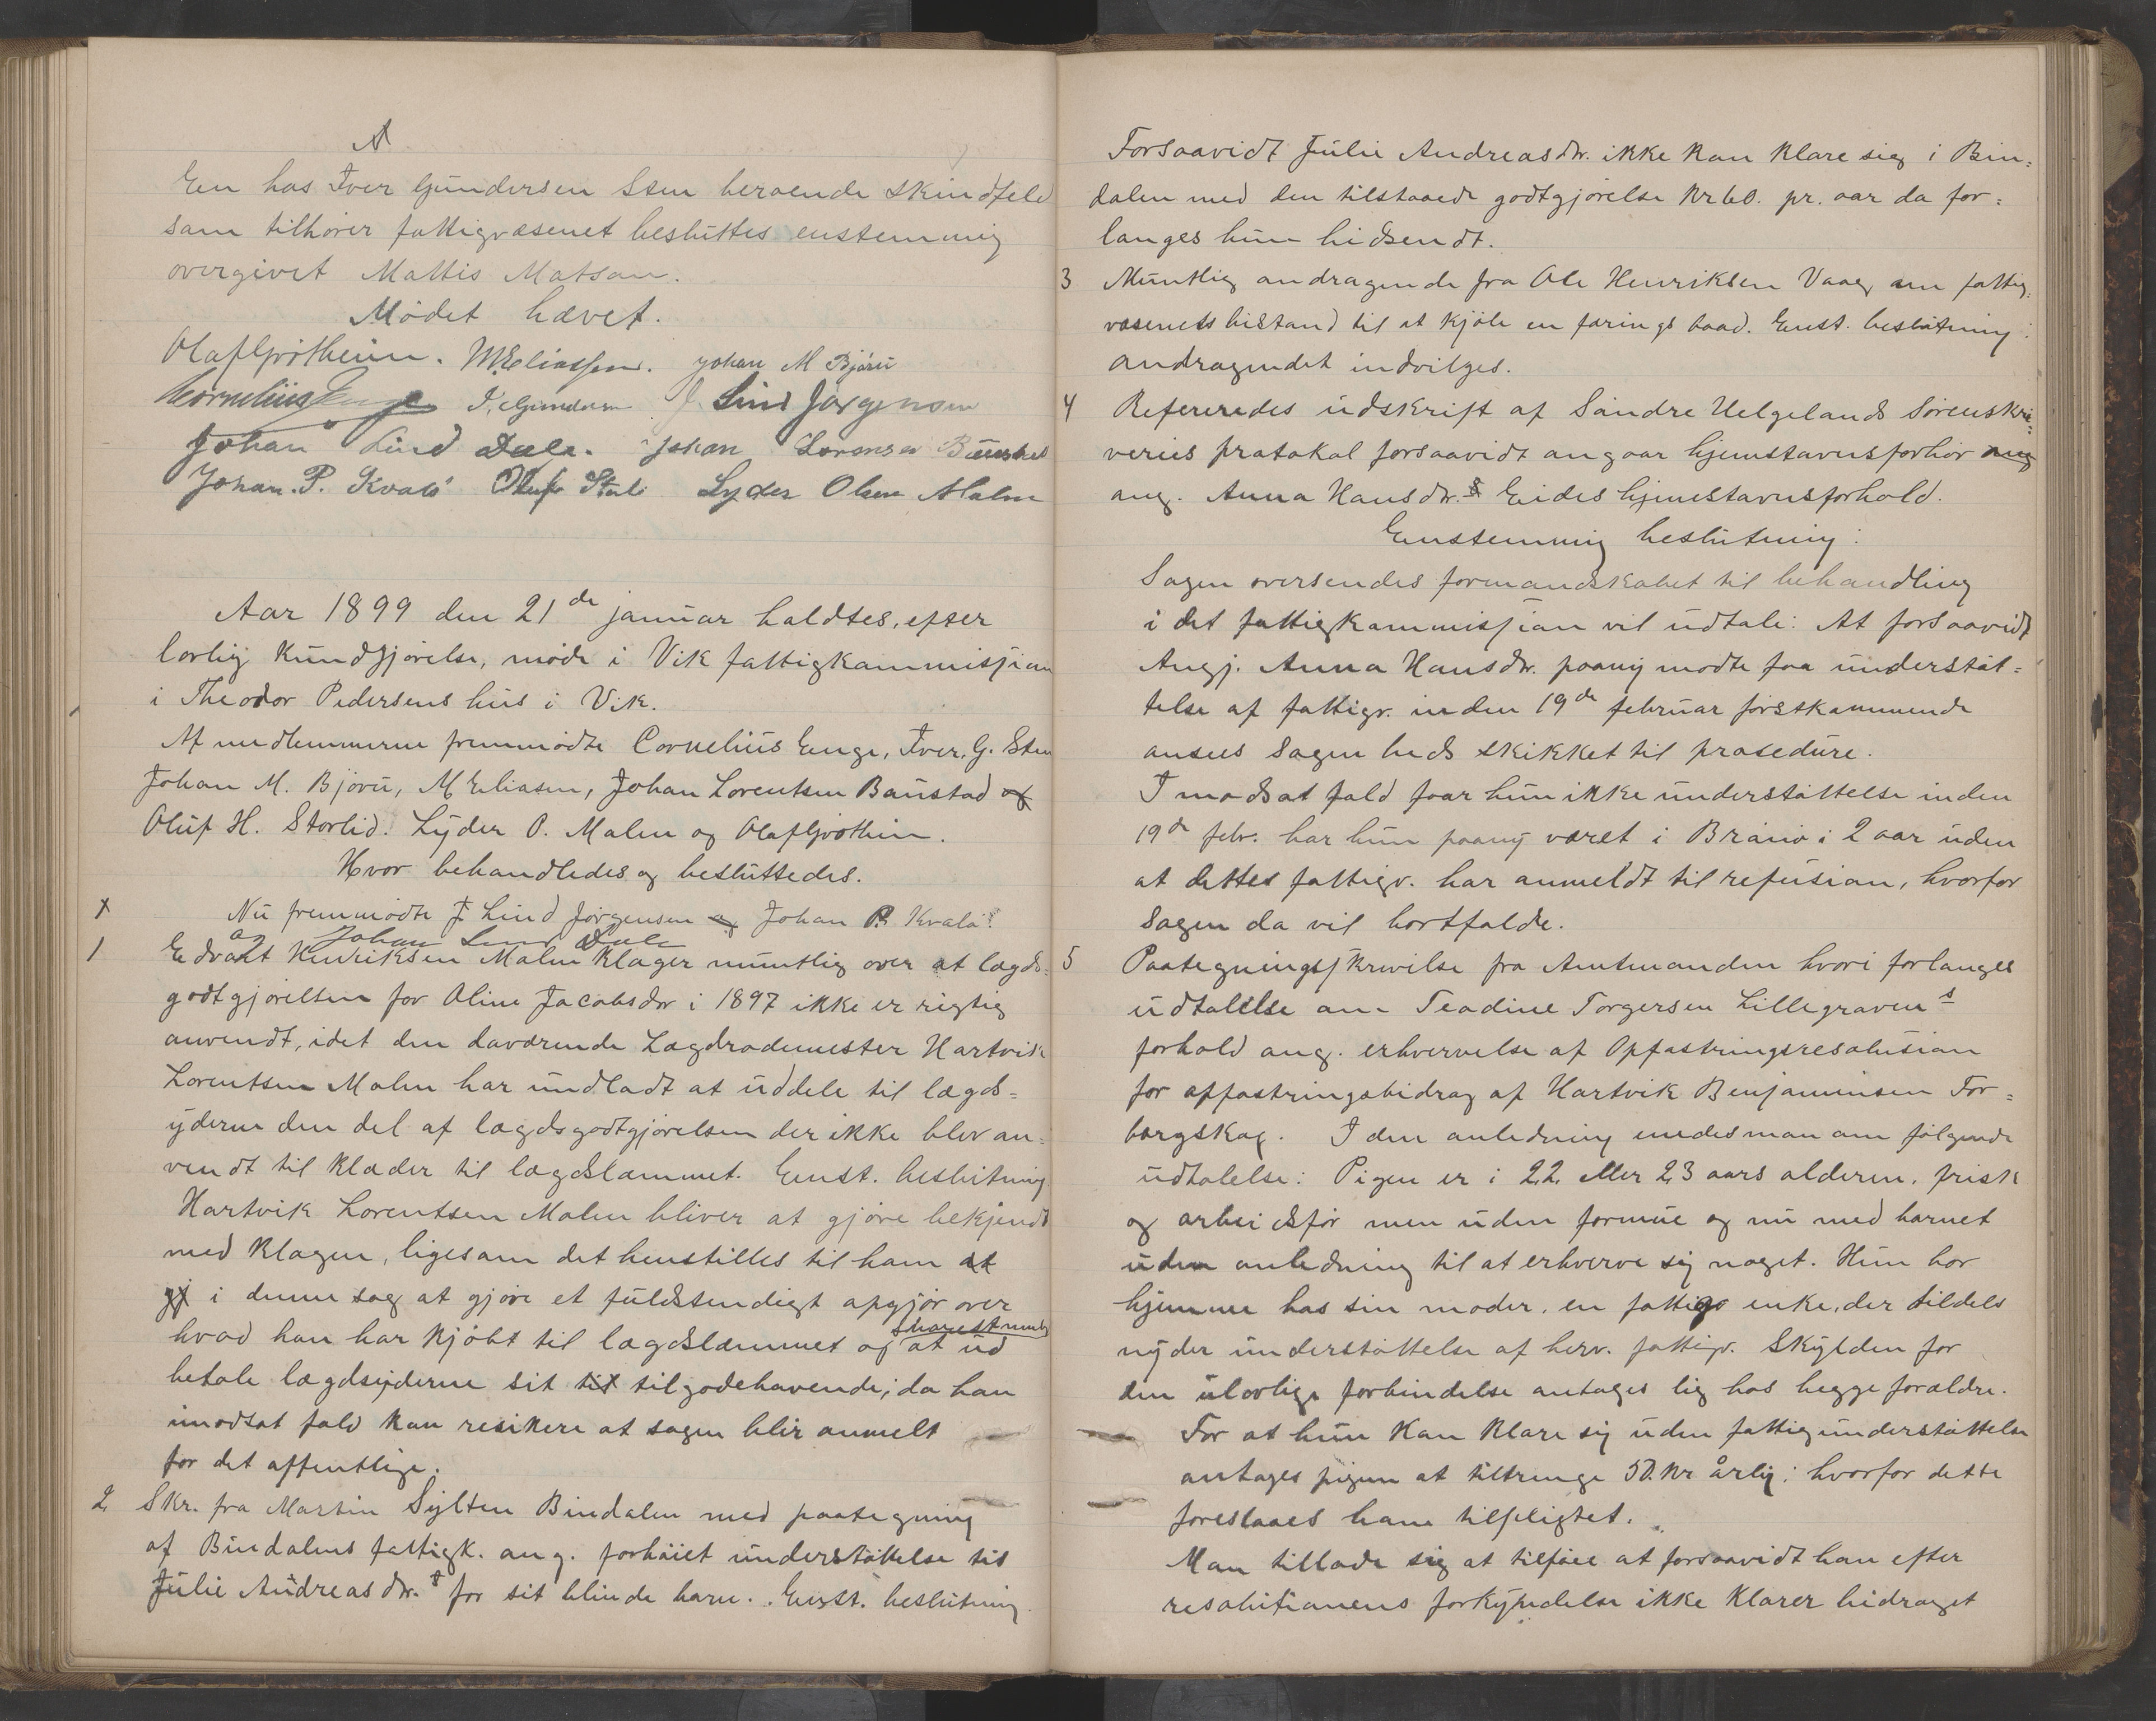 En hos Iver Gundersen Sten beroende skindfeld
som tilhører fattigvæsenet besluttes enstemmig
overgivet Mattis Matsøn.
Mødet hævet.
Olaf Grøtheim. M. Eliassen. Johan M Bjørü
Cornelius Enge I. Gundersen J Lind Jørgensen
Johan Lind Dale. Johan Lorensen Baustad
Johan. P. Kvalø Oluf Storli Lyder Olsen Malm
Aar 1899 den 21de januar holdtes, efter
lovlig kundgjørelse, møde i Vik fattigkommisjion
i Theodor Pedersens hus i Vik.
Af medlemmerne fremmødte Cornelius Enge, Iver. G. Sten
Johan M. Bjøru, M Eliasen, Johan Lorentsen Baustad og
Oluf H. Storlid. Lyder O. Malen og Olaf Grøtheim.
Hvor behandledes og besluttedes.
x Nu fremmødte J. Lind Jørgensen og Johan P. Kvalø.
og Johan Lind Dale
1 Edvart Henriksen Malm klager muntlig over at lægds-
godtgjørelsen for Oline Jacobsdr i 1897 ikke er rigtig
anvendt, idet den daværende Lægdrodemester Hartvik
Lorentsen Malm har undladt at uddele til lægds=
yderne den del af lægdsgodtgjørelsen der ikke blev an=
vendt til klæder til lægdslemmet. Enst. beslutning
Hartvik Lorentsen Malm bliver at gjøre bekjendt
med klagen, ligesom det henstilles til ham at
gj i denne sag at gjøre et fuldstendigt opgjør over
hvad han har kjøbt til lægdslemmet og at snarest mulig ud
betale lægdsyderne sit til tilgodehavende; da han
imodsat fald kan resikere at sagen blir anmelt
for det offentlige.
2 Skr. fra Martin Sylten Bindalen med paategning
af Bindalens fattigk. ang. forhøiet understøttelse til
Julie Andreasdr.s for sit blinde barn. Enst. beslutning.
Forsaavidt Julie Andreasdr. ikke kan klare sig i Bin=
dalen med den tilstaaede godtgjørelse Kr 60. pr. aar da for=
langes hun hidsendt.
3 Muntlig andragende fra Ole Henriksen Vaag om fattig=
væsenets bistand til at kjøbe en færings baad. Enst. beslutning:
andragendet indvilges.
4 Refereredes udskrift af Søndre Helgelands Sorenskri=
veries protokol forsaavidt angaar hjemstavnsforhør ang
ang. Anna Hansdr.s Eides hjemstavnsforhold.
Enstemmig beslutning:
Sagen oversendes formandskabet til behandling
i det fattigkommissjion vil udtale: At forsaavidt
Angj. Anna Hansdr. paany maatte faa understøt=
telse af fattigv. inden 19de februar førstkommende
ansees sagen beds skikket til prosedure.
I modsat fald faar hun ikke understøttelse inden
19de febr. har hun paany været i Brønø i 2 aar uden
at dettes fattigv. har anmeldt til refusion, hvorfor
sagen da vil bortfalde.
5 Paategningsskrivelse fra Amtmanden hvori forlanges
udtalelse om Teadine Torgersen Lillegraven s
forhold ang. erhvervelse af Opfostringsresolusion
for opfostringsbidrag af Hartvik Benjaminsen Tor=
borgskag. I den anledning enedes man om følgende
udtalelse: Pigen er i 22 eller 23 aars alderen, frisk
og arbeidsfør men uden formue og nu med barnet
uden anledning til at erhverve sig noget. Hun bor
hjemme hos sin moder, en fattigs enke, der tildels
nyder understøttelse af herv. fattigv. Skylden for
den ulovlige forbindelse antages lig hos begge forældre.
For at hun kan klare sig uden fattigunderstøttelse
antages pigen at tiltrenge 50. kr årlig; hvorfor dette
foreslaaes ham tilpligtet.
Man tillade sig at tilføie at forsaavidt han efter
resolutionens forkyndelse ikke klarer bidraget